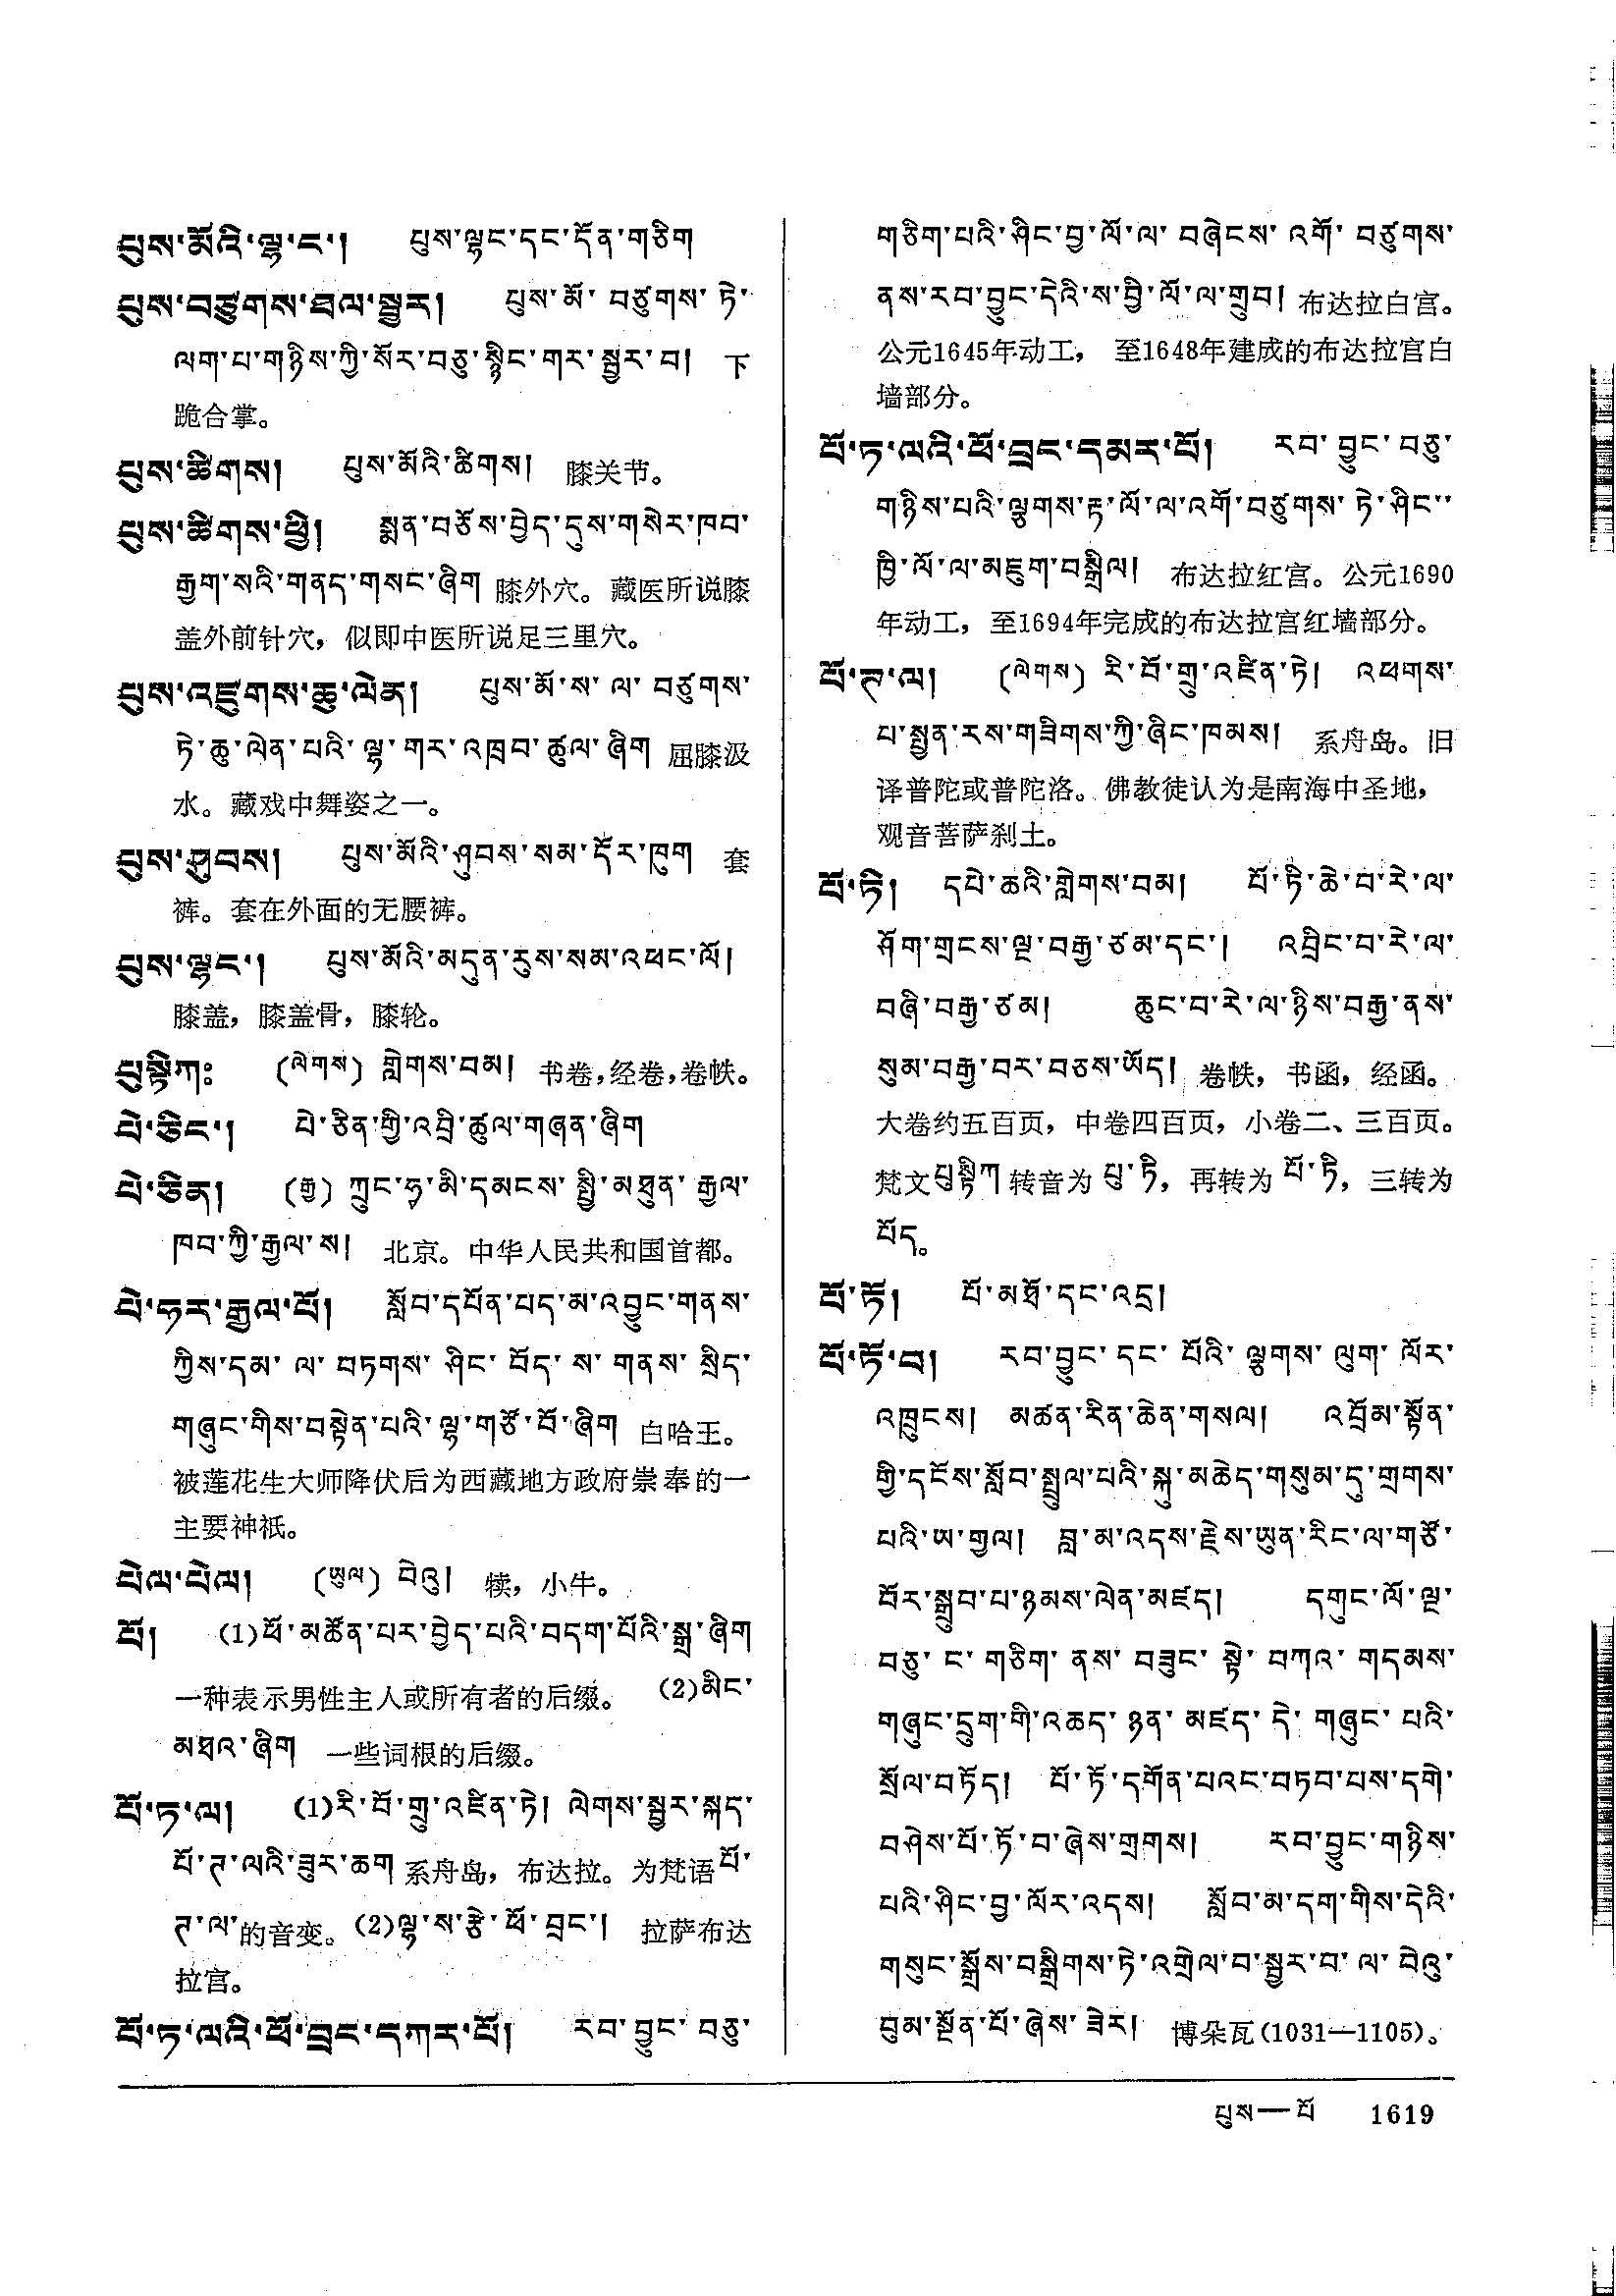 པུས་མོའི་ལྷ་ང་། པུས་ལྷང་དང་དོན་གཅིག
པུས་བཙུགས་ཐལ་སྦྱར། པུས་མོ་ བཙུགས་ ཏེ་
ལག་པ་གཉིས་ཀྱི་སོར་བཅུ་སྙིང་གར་སྦྱར་བ། 下
跪合掌。
པུས་ཚིགས། པུས་མོའི་ཚིགས། 膝关节。
པུས་ཚིགས་ཕྱི། སྨན་བཅོས་བྱེད་དུས་གསེར་ཁབ་
རྒྱག་སའི་གནད་གསང་ཞིག 膝外穴。藏医所说膝
盖外前针穴，似即中医所说足三里穴。
པུས་འཛུགས་ཆུ་ལེན། པུས་མོ་ས་ ལ་ བཙུགས་
ཏེ་ཆུ་ལེན་པའི་ ལྷ་གར་འཁྲབ་ཚུལ་ཞིག 屈膝汲
水。藏戏中舞姿之一。
པུས་ཤུབས། པུས་མོའི་ཤུབས་སམ་དོར་ཁུག 套
裤。套在外面的无腰裤。
པུས་ལྷང་། པུས་མོའི་མདུན་རུས་སམ་འཕང་ལོ།
膝盖，膝盖骨，膝轮。
པུསྟིཀཿ (ལེགས) གླེགས་བམ། 书卷,经卷,卷帙。
པེ་ཅིང་། པེ་ཅིན་གྱི་འབྲི་ཚུལ་གཞན་ཞིག
པེ་ཅིན། (རྒྱ) ཀྲུང་ཧྭ་མི་དམངས་ སྤྱི་མཐུན་ རྒྱལ་
ཁབ་ཀྱི་རྒྱལ་ས། 北京。中华人民共和国首都。
པེ་ཧར་རྒྱལ་པོ། སློབ་དཔོན་པད་མ་འབྱུང་གནས་
ཀྱིས་དམ་ ལ་ བཏགས་ ཤིང་ བོད་ ས་ གནས་ སྲིད་
གཞུང་གིས་བསྟེན་པའི་ལྷ་གཙོ་བོ་ཞིག 白哈王。
被莲花生大师降伏后为西藏地方政府崇奉的一
主要神祇。
པེལ་པེལ། (ཡུལ) བེའུ། 犊，小牛。
པོ། (1)ཕོ་མཚོན་པར་བྱེད་པའི་བདག་པོའི་སྒྲ་ཞིག
一种表示男性主人或所有者的后缀。 (2)མིང་
མཐའ་ཞིག 一些词根的后缀。
པོ་ཏ་ལ། (1)རི་བོ་གྲུ་འཛིན་ཏེ། ལེགས་སྦྱར་སྐད་
པོ་ཊ་ལའི་ཟུར་ཆག 系舟岛，布达拉。为梵语པོ་
ཊ་ལ་的音变。(2)ལྷ་ས་རྩེ་ཕོ་བྲང་། 拉萨布达
拉宫。
པོ་ཏ་ལའི་ཕོ་བྲང་དཀར་པོ། རབ་ བྱུང་ བཅུ་
གཅིག་པའི་ཤིང་བྱ་ལོ་ལ་ བཞེངས་ འགོ་ བཙུགས་
ནས་རབ་བྱུང་དེའི་ས་བྱི་ལོ་ལ་གྲུབ། 布达拉白宫。
公元1645年动工， 至1648年建成的布达拉宫白
墙部分。
པོ་ཏ་ལའི་ཕོ་བྲང་དམར་པོ། རབ་ བྱུང་ བཅུ་
གཉིས་པའི་ལྕགས་རྟ་ལོ་ལ་འགོ་བཙུགས་ ཏེ་ཤིང་་
ཁྱི་ལོ་ལ་མཇུག་བསྒྲིལ། 布达拉红宫。公元1690
年动工，至1694年完成的布达拉宫红墙部分。
པོ་ཊ་ལ། (ལེགས) རི་བོ་གྲུ་འཛིན་ཏེ། འཕགས་
པ་སྤྱན་རས་གཟིགས་ཀྱི་ཞིང་ཁམས། 系舟岛。旧
译普陀或普陀洛。佛教徒认为是南海中圣地，
观音菩萨刹土。
པོ་ཏི། དཔེ་ཆའི་གླེགས་བམ། པོ་ཏི་ཆེ་བ་རེ་ལ་
ཤོག་གྲངས་ལྔ་བརྒྱ་ཙམ་དང་། འབྲིང་བ་རེ་ལ་
བཞི་བརྒྱ་ཙམ། ཆུང་བ་རེ་ལ་ཉིས་བརྒྱ་ནས་
སུམ་བརྒྱ་བར་བཅས་ཡོད། 卷帙，书函，经函。
大卷约五百页，中卷四百页，小卷二、三百页。
梵文པུསྟིཀ转音为པུ་ཏི，再转为པོ་ཏི，三转为
པོད。
པོ་ཏོ། པོ་མཐོ་དང་འདྲ།
པོ་ཏོ་བ། རབ་བྱུང་ དང་ པོའི་ ལྕགས་ ལུག་ ལོར་
འཁྲུངས། མཚན་རིན་ཆེན་གསལ། འབྲོམ་སྟོན་
གྱི་དངོས་སློབ་སྤྲུལ་པའི་སྐུ་མཆེད་གསུམ་དུ་གྲགས་
པའི་ཡ་གྱལ། བླ་མ་འདས་རྗེས་ཡུན་རིང་ལ་གཙོ་
བོར་སྒྲུབ་པ་ཉམས་ལེན་མཛད། དགུང་ལོ་ལྔ་
བཅུ་ ང་ གཅིག་ ནས་ བཟུང་ སྟེ་ བཀའ་ གདམས་
གཞུང་དྲུག་གི་འཆད་ཉན་ མཛད་ དེ་ གཞུང་ པའི་
སྲོལ་བཏོད། པོ་ཏོ་དགོན་པའང་བཏབ་པས་དགེ་
བཤེས་པོ་ཏོ་བ་ཞེས་གྲགས། རབ་བྱུང་གཉིས་
པའི་ཤིང་བྱ་ལོར་འདས། སློབ་མ་དག་གིས་དེའི་
གསུང་སྒྲོས་བསྒྲིགས་ཏེ་འགྲེལ་བ་སྦྱར་བ་ ལ་ བེའུ་
བུམ་སྔོན་པོ་ཞེས་ ཟེར། 博朵瓦(1031—1105)。
པུས—པོ 1619